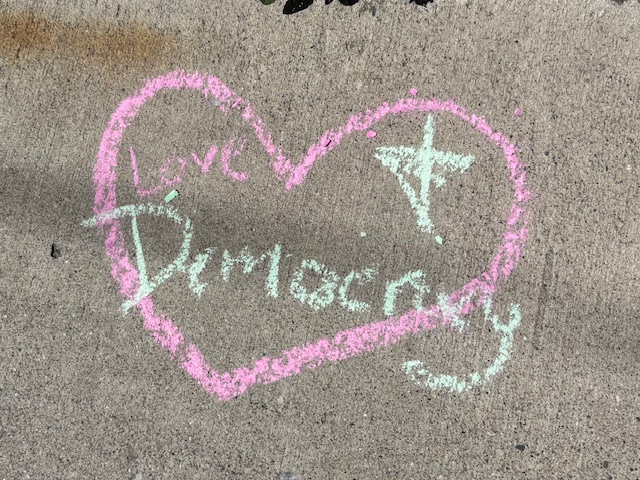 Love
Democracy